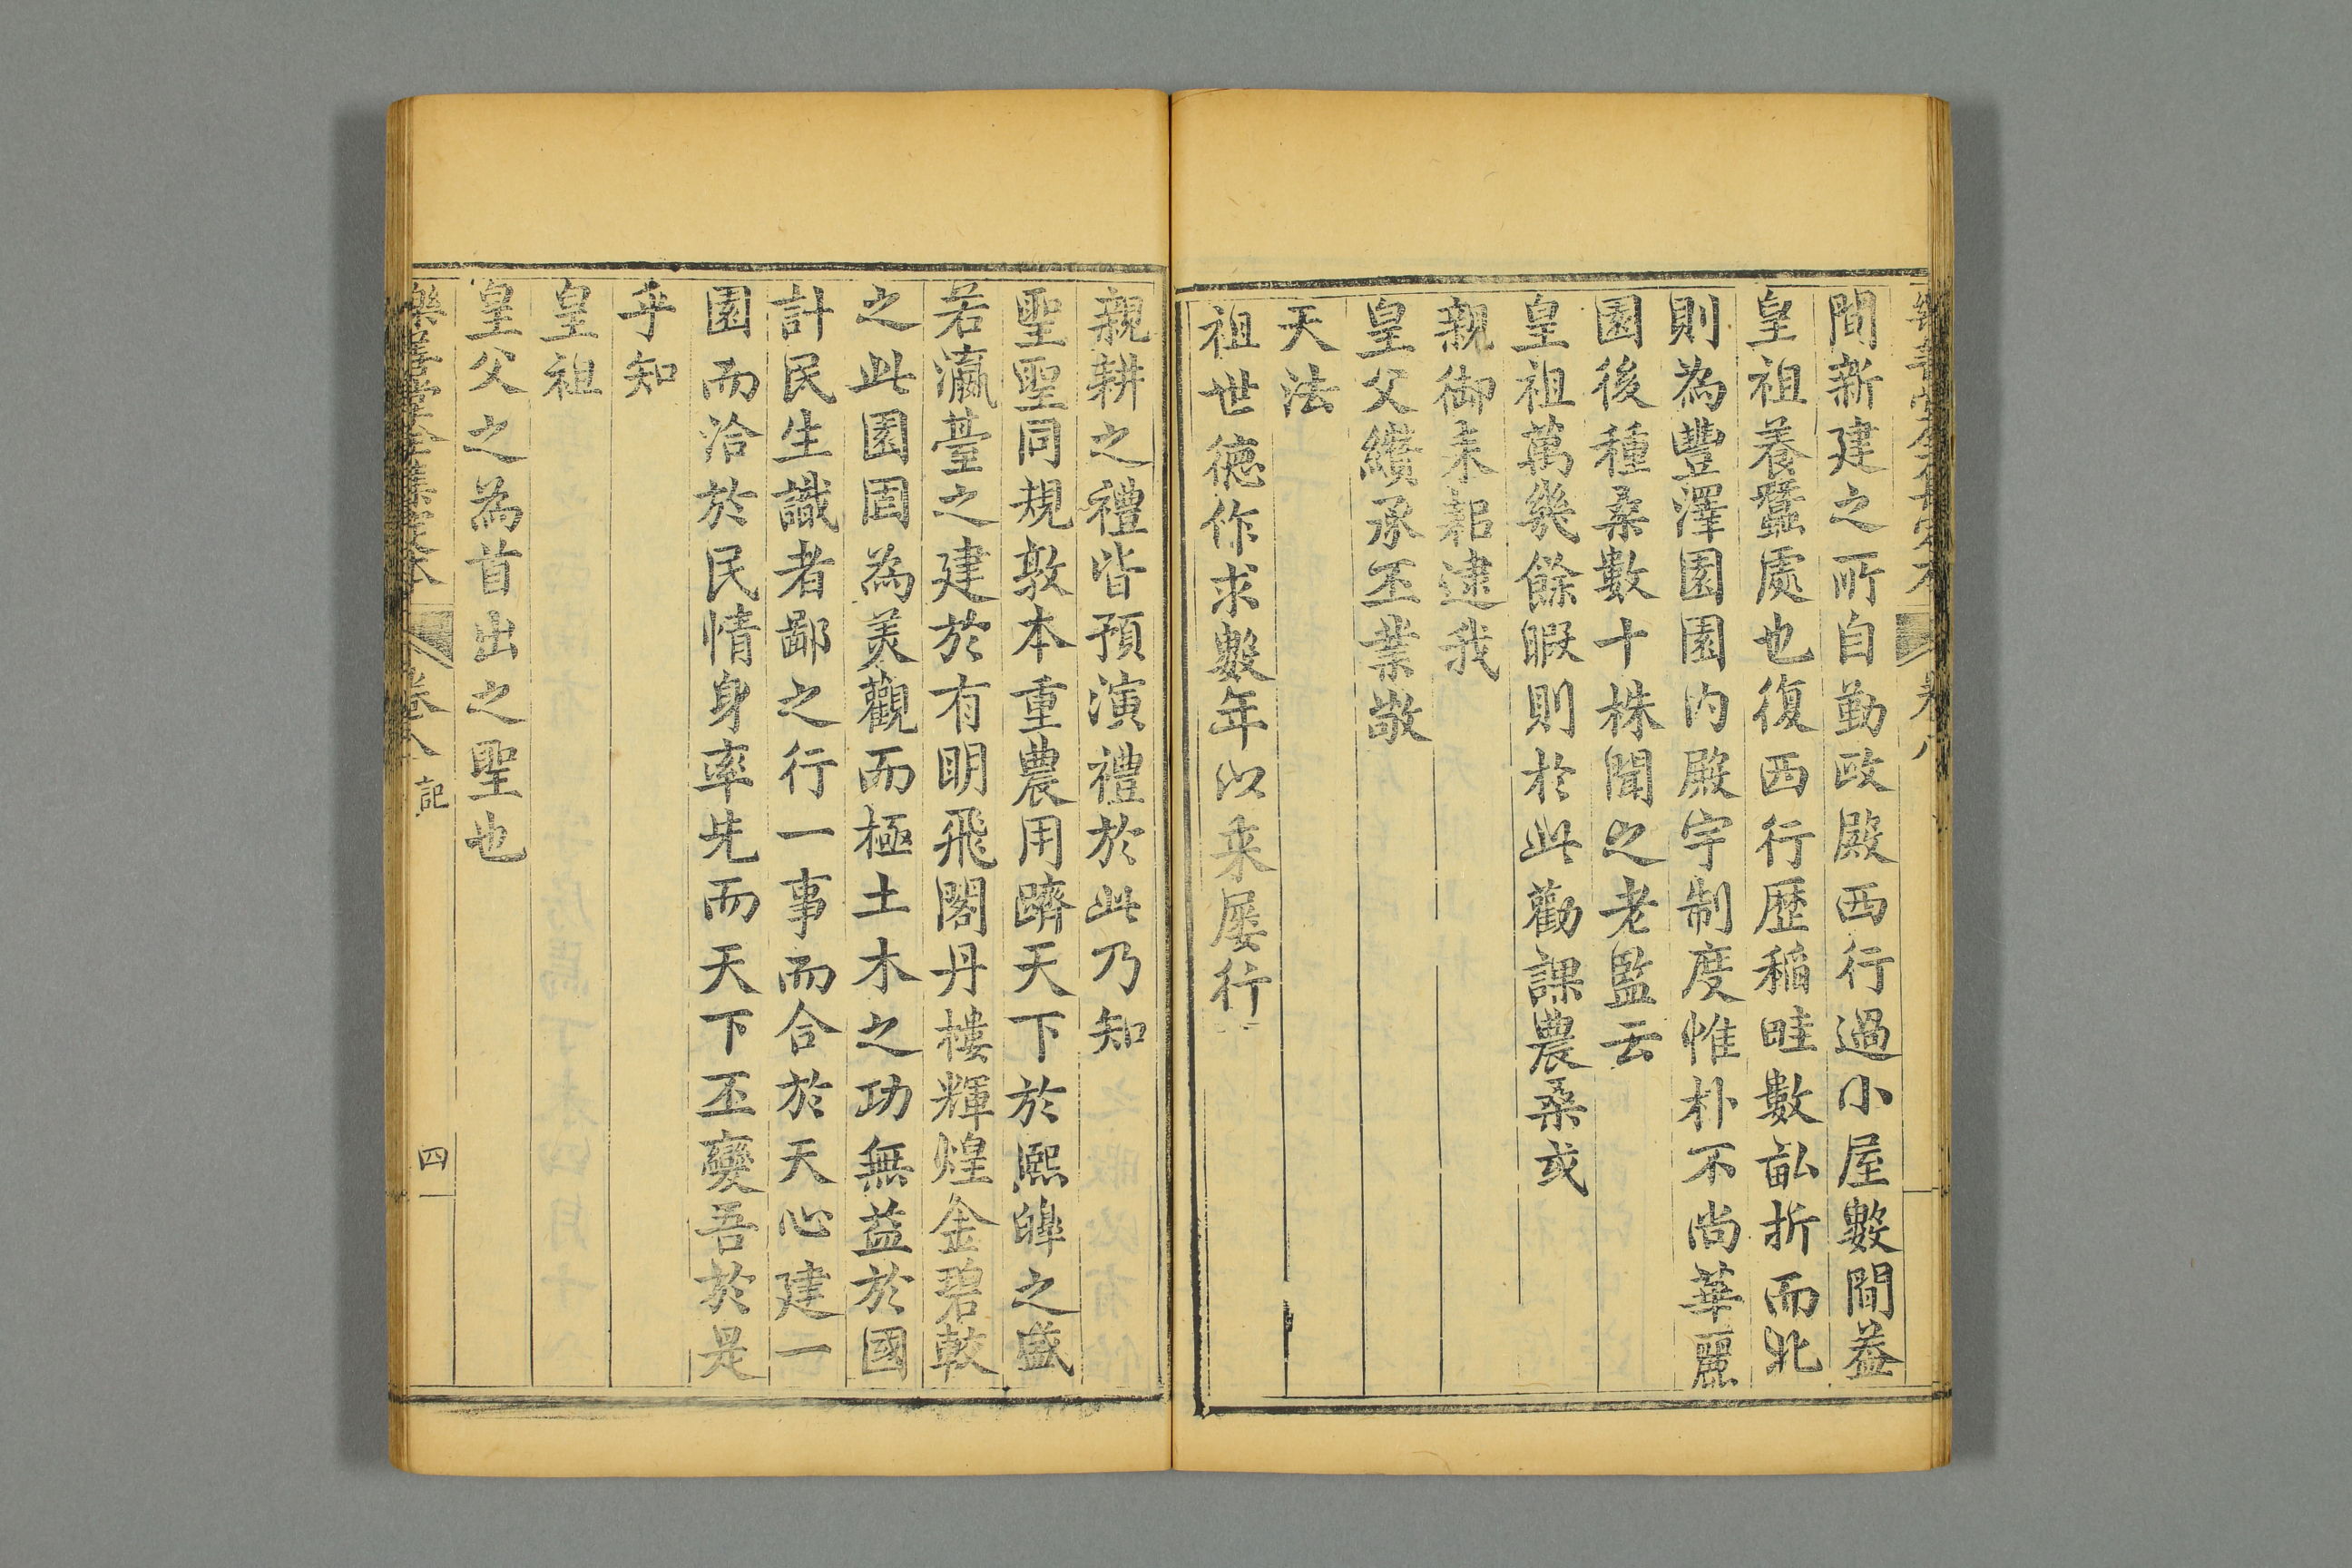 間新建之所自勤政殿西行過小屋數間葢
皇祖養蠶處也復西行歴稲畦數畝折而北
則為豐澤園園内殿宇制度惟朴不尚華麗
園後種桑數十株聞之老監云
皇祖萬幾餘暇則於此勸課農桑或
親御耒耜逮我
皇父纉承丕業敬
天法
祖世徳作求數年以来屡行
親耕之禮皆預演禮於此乃知
聖聖同規敦本重農用躋天下於熈皥之盛
若瀛臺之建於有明飛閣丹樓輝煌金碧較
之此園固為美觀而極土木之功無益於國
計民生識者鄙之行一事而合於天心建一
園而洽於民情身率先而天下丕變吾於是
乎知
皇祖
皇父之為首出之聖也
樂善堂全集定本 卷八 記 四